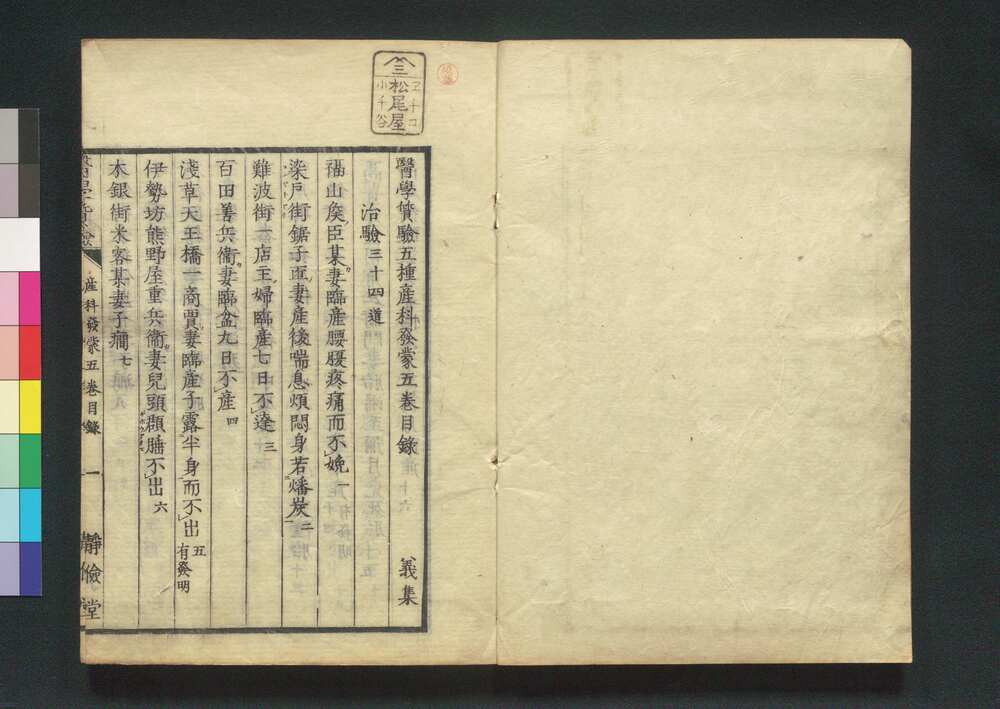 醫學實驗五種産科發蒙五卷目錄 義集
治驗三十四道
福山矦臣某妻臨産腰腹疼痛而不娩一
染戸街鋸子匠妻産後喘息煩悶身若燔炭二
難波街一店主婦臨産七日不達三
百田善兵衞妻臨盆九日不産四
淺草天王橋一商賈妻臨産子露半身而不出五有發明
伊勢坊熊野屋重兵衞妻兒頭腫不出六
本銀街米客某妻子癇七
産科發蒙五卷目錄 一 靜儉堂
三
松尾屋
小千谷
ヱチコ